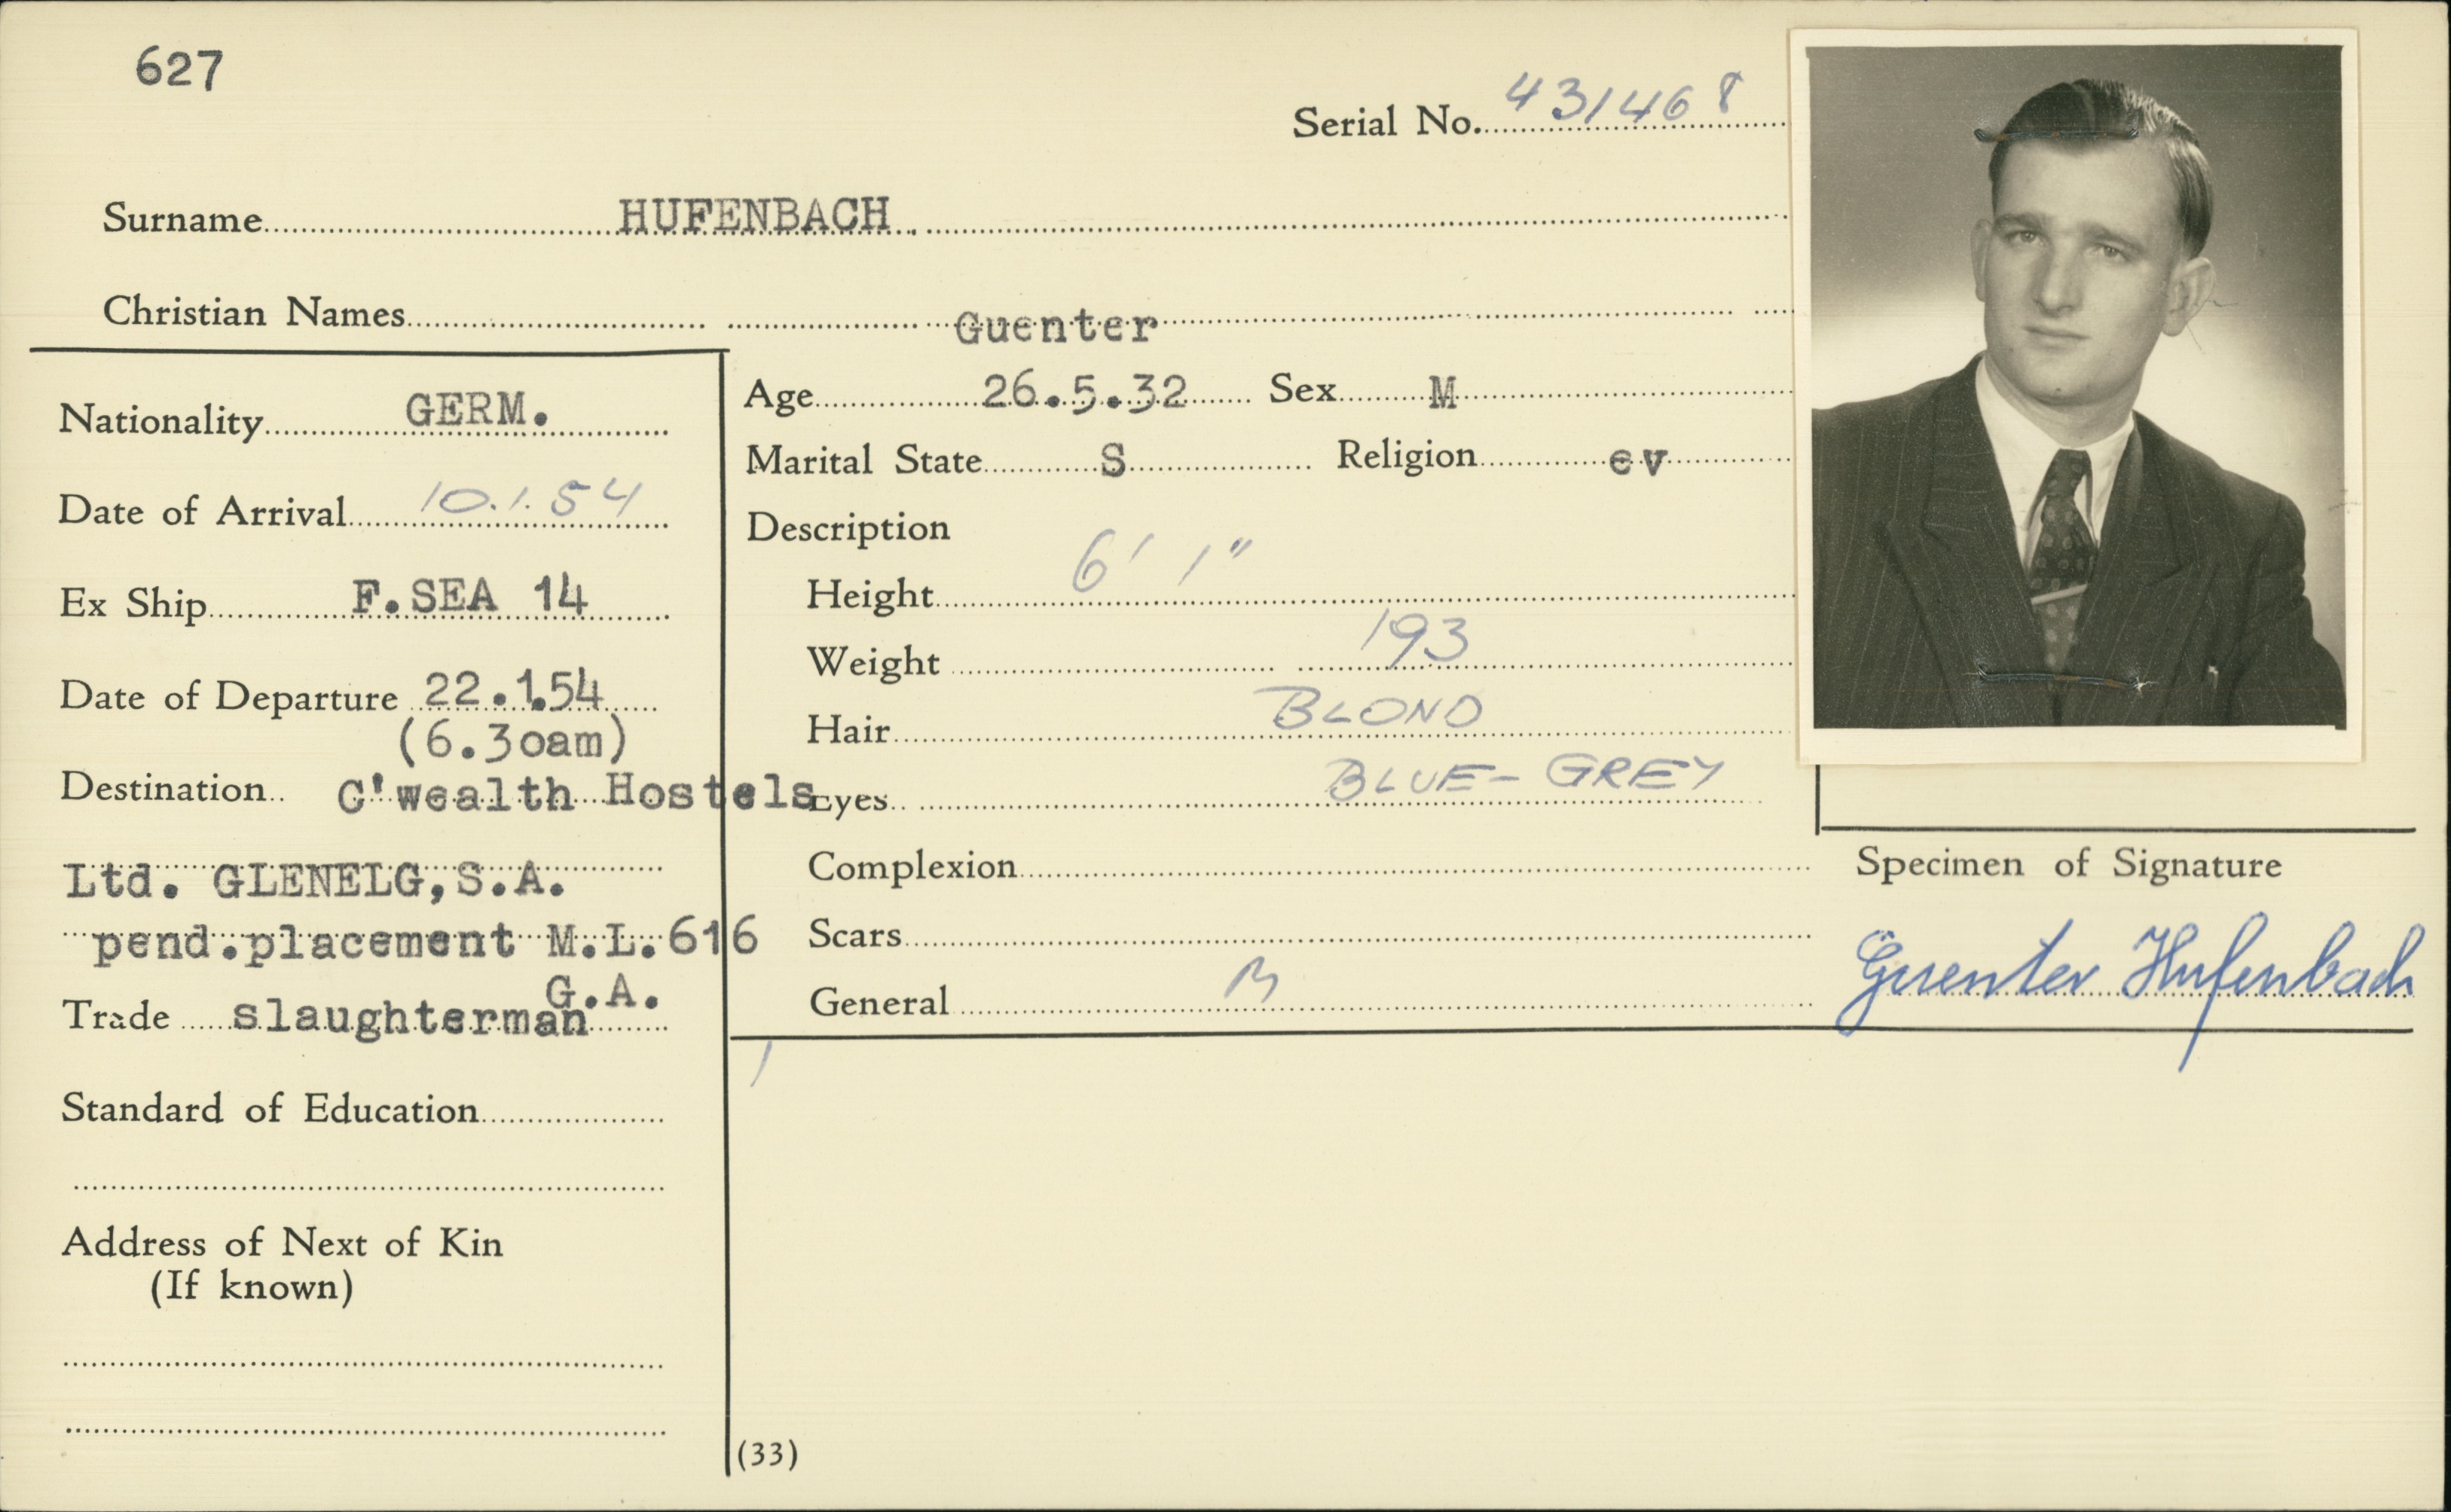 627
Serial No. 431468
Surname HUFENBACH
Christian Names Guenter
Nationality GERM.
Date of Arrival 10.1.54
Ex Ship F.SEA 14
Date of Departure 22.1.54
(6.30am)
Destination C'wealth Hostels
Ltd. GLENELG,S.A.
pend.placement M.L.616
G.A.
Trade slaughterman
Standard of Education
Address of Next of Kin
(If known)
Age 26.5.32 Sex M
Marital State S Religion ev
Description
Height 6' 1"
Weight 193
Hair BLOND
Eyes BLUE-GREY
Complexion
Scars
General
Specimen of Signature
Guenter Hufenbach
(33)